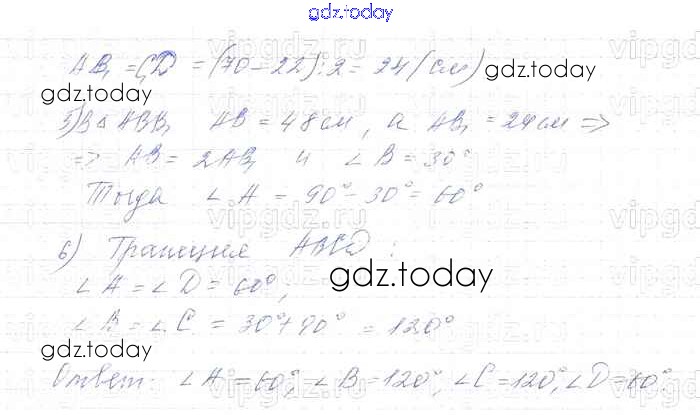 gdz.today
AB₁ = C₁D = (70 - 22) : 2 = 24 (см)
gdz.today
gdz.today
5) В △ ABB₁ AB = 48 см, а AB₁ = 24 см ⇒
⇒ AB = 2AB₁ и ∠B = 30°
Тогда ∠A = 90° - 30° = 60°
6) Трапеция ABCD:
gdz.today
∠A = ∠D = 60°;
∠B = ∠C = 30° + 90° = 120°
gdz.today
Ответ: ∠A = 60°, ∠B = 120°, ∠C = 120°, ∠D = 60°.